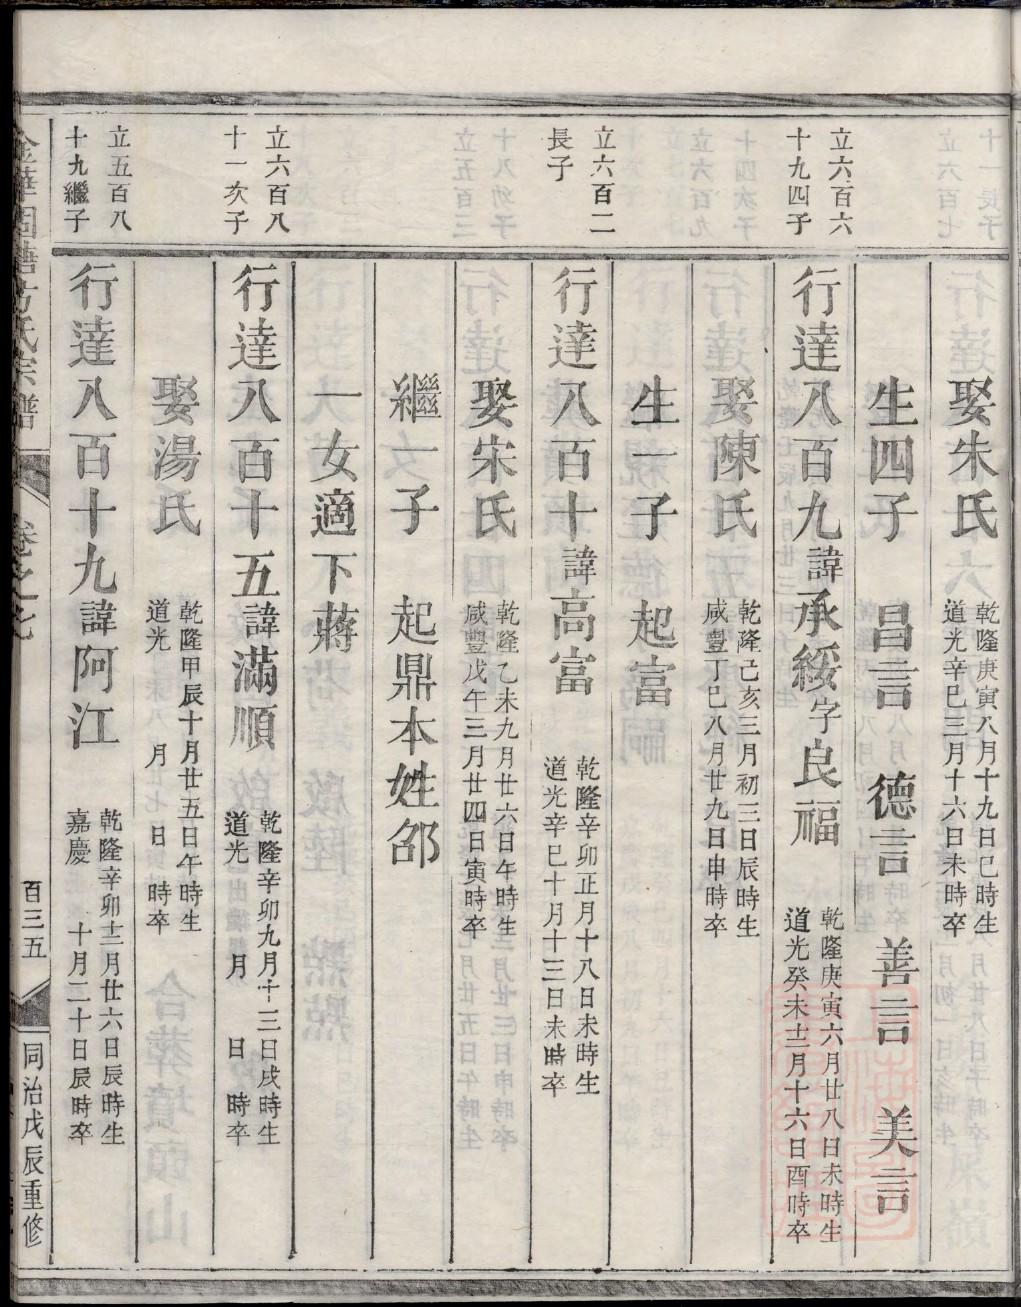 娶朱氏 乾隆庚寅八月十九日巳時生
道光辛巳三月十六日未時卒
生四子 昌言 德言 善言 美言
立六百六
十九四子
行達八百九諱承綏字良福 乾隆庚寅六月廿八日未時生
道光癸未十二月十六日酉時卒
娶陳氏 乾隆己亥三月初三日辰時生
咸豐丁巳八月廿九日申時卒
生一子 起富
立六百二
長子
行達八百十諱高富 乾隆辛卯正月十八日未時生
道光辛巳十月十三日未時卒
娶宋氏 乾隆乙未九月廿六日午時生
咸豐戊午三月廿四日寅時卒
繼一子 起鼎本姓邵
一女適下蔣
立六百八
十一次子
行達八百十五諱滿順 乾隆辛卯九月十三日戌時生
道光 月 日 時卒
娶湯氏 乾隆甲辰十月廿五日午時生
道光 月 日 時卒
立五百八
十九繼子
行達八百十九諱阿江 乾隆辛卯十二月廿六日辰時生
嘉慶 十月二十日辰時卒
氏宗譜 卷之七 百三五 同治戊辰重修